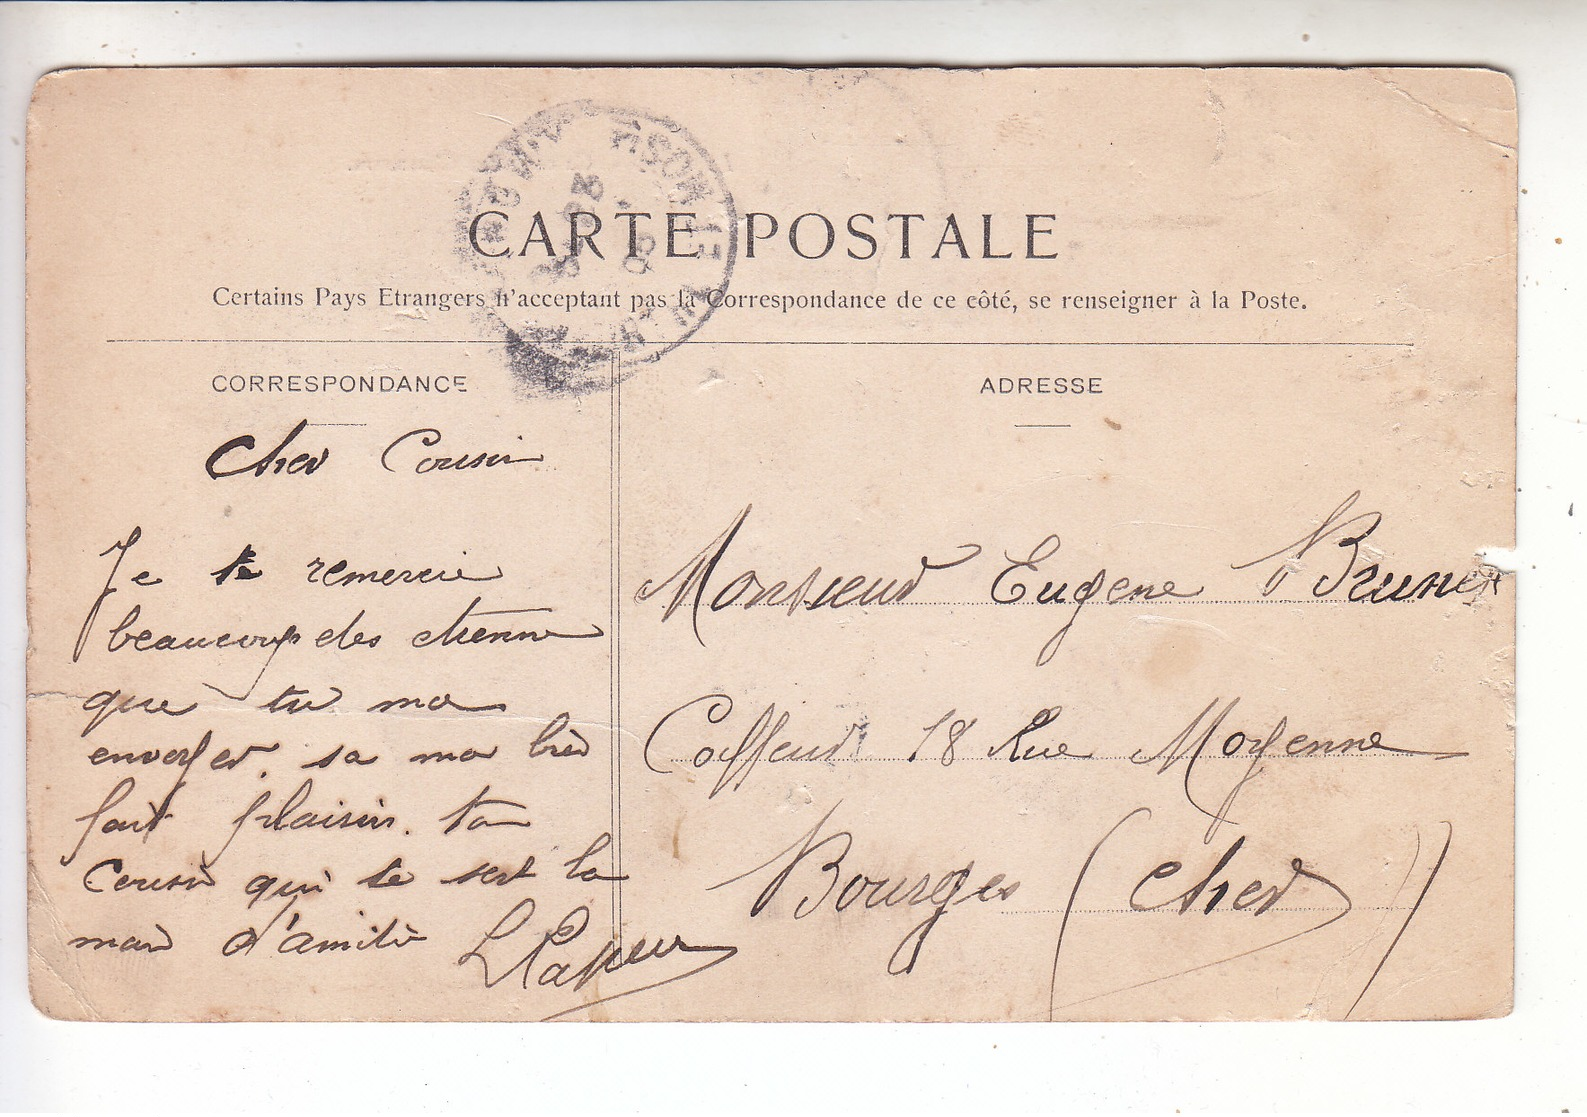 CARTE POSTALE
Certains Pays Etrangers n'acceptant pas la Correspondance de ce côté, se renseigner à la Poste.
CORRESPONDANCE
Cher Cousin
Je te remercie
beaucoup des etrenne
que tu ma
envoyer. sa ma bien
fait plaisir. ton
Cousin qui te sert la
main d'amitié
ADRESSE
Monsieur Eugene Brunet
Coiffeur 18 Rue Moyenne
Bourges (Cher)